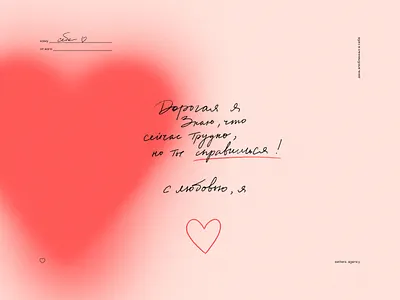 кому себе ♡
Дорогая я
Знаю, что
сейчас трудно,
но ты справишься!
с любовью, я